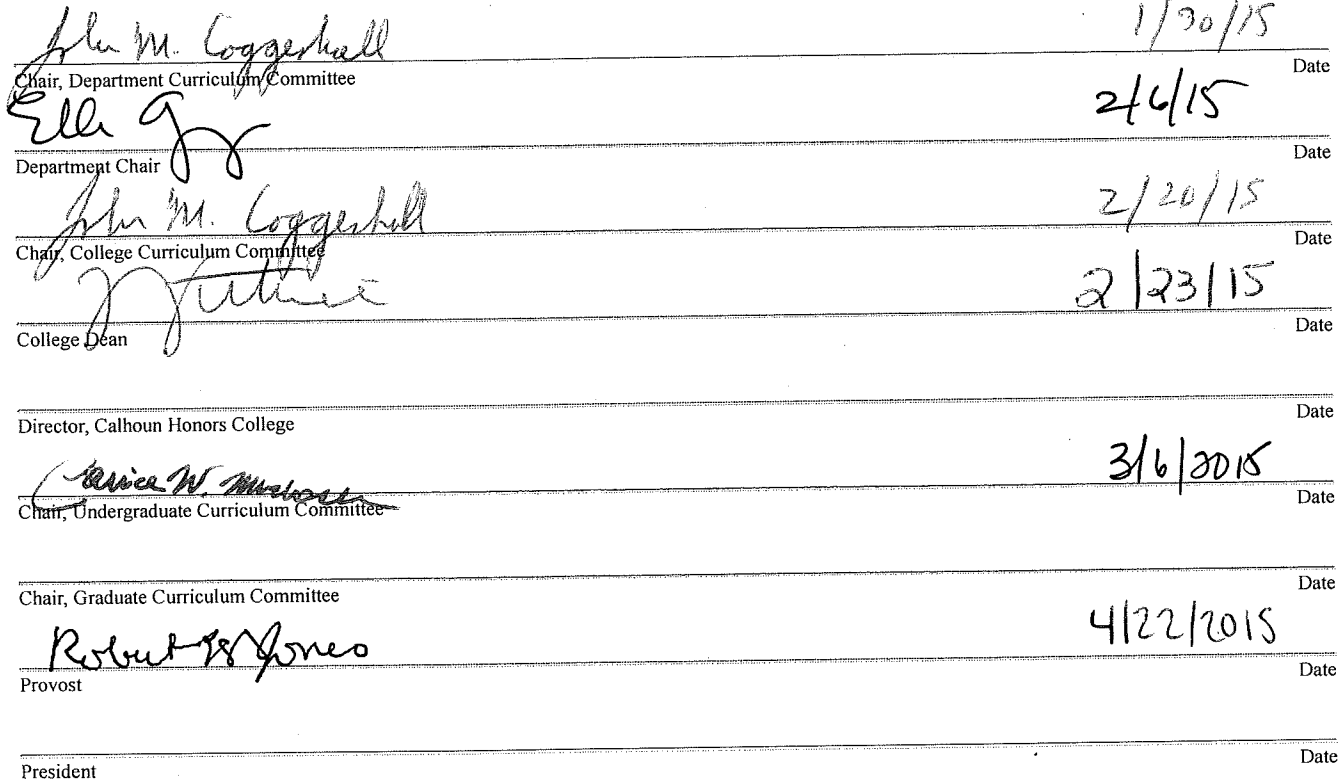 John M. Coggeshall 1/30/15
Chair, Department Curriculum Committee Date
2/6/15
Department Chair Date
John M. Coggeshall 2/20/15
Chair, College Curriculum Committee Date
2/23/15
College Dean Date
Director, Calhoun Honors College Date
Janice W. 3/6/2015
Chair, Undergraduate Curriculum Committee Date
Chair, Graduate Curriculum Committee Date
Robert Jones 4/22/2015
Provost Date
President Date